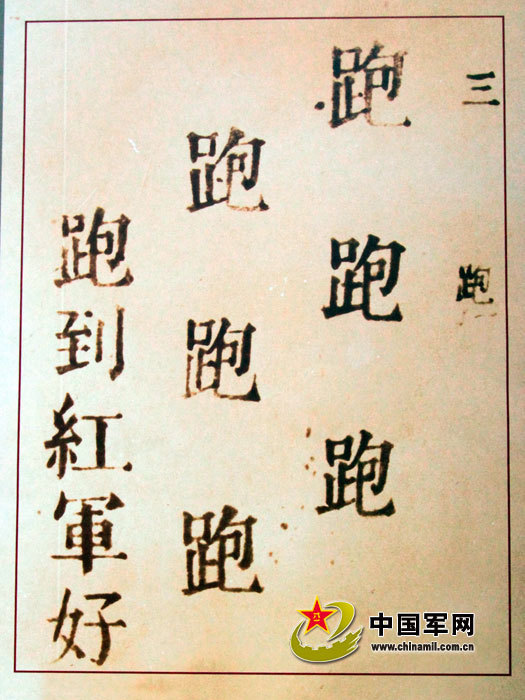 三 跑
跑 跑 跑
跑 跑 跑
跑到紅軍好
中国军网
www.chinamil.com.cn